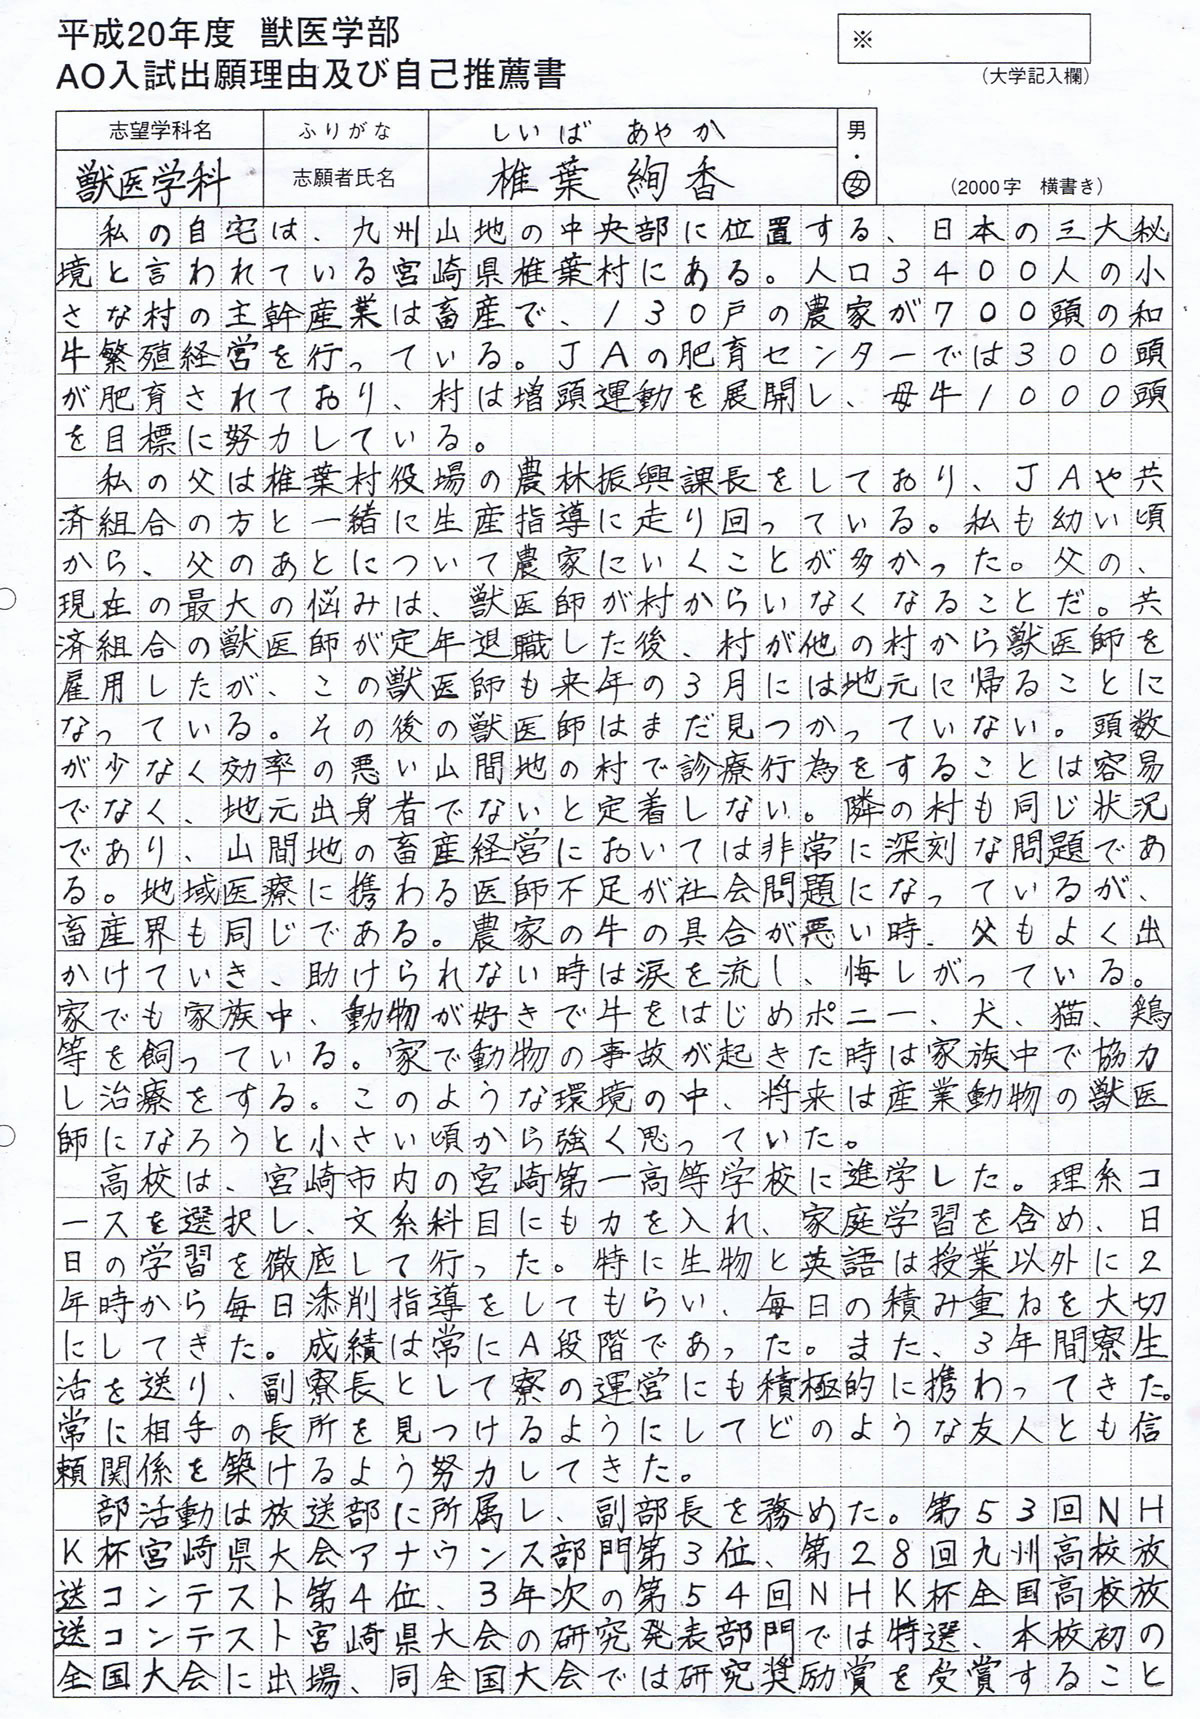 平成20年度 獣医学部
AO入試出願理由及び自己推薦書
※
(大学記入欄)
志望学科名 ふりがな しいば あやか 男・女
獣医学科 志願者氏名 椎葉 絢香
(2000字 横書き)
私の自宅は、九州山地の中央部に位置する、日本の三大秘
境と言われている宮崎県椎葉村にある。人口3400人の小
さな村の主幹産業は畜産で、130戸の農家が700頭の和
牛繁殖経営を行っている。JAの肥育センターでは300頭
が肥育されており、村は増頭運動を展開し、母牛1000頭
を目標に努力している。
私の父は椎葉村役場の農林振興課長をしており、JAや共
済組合の方と一緒に生産指導に走り回っている。私も幼い頃
から、父のあとについて農家にいくことが多かった。父の、
現在の最大の悩みは、獣医師が村からいなくなることだ。共
済組合の獣医師が定年退職した後、村が他の村から獣医師を
雇用したが、この獣医師も来年の3月には地元に帰ることに
なっている。その後の獣医師はまだ見つかっていない。頭数
が少なく効率の悪い山間地の村で診療行為をすることは容易
でなく、地元出身者でないと定着しない。隣の村も同じ状況
であり、山間地の畜産経営においては非常に深刻な問題であ
る。地域医療に携わる医師不足が社会問題になっているが、
畜産界も同じである。農家の牛の具合が悪い時、父もよく出
かけていき、助けられない時は涙を流し、悔しがっている。
家でも家族中、動物が好きで牛をはじめポニー、犬、猫、鶏
等を飼っている。家で動物の事故が起きた時は家族中で協力
し治療をする。このような環境の中、将来は産業動物の獣医
師になろうと小さい頃から強く思っていた。
高校は、宮崎市内の宮崎第一高等学校に進学した。理系コ
ースを選択し、文系科目にも力を入れ、家庭学習を含め、日
日の学習を徹底して行った。特に生物と英語は授業以外に2
年時から毎日添削指導をしてもらい、毎日の積み重ねを大切
にしてきた。成績は常にA段階であった。また、3年間寮生
活を送り、副寮長として寮の運営にも積極的に携わってきた。
常に相手の長所を見つけるようにしてどのような友人とも信
頼関係を築けるよう努力してきた。
部活動は放送部に所属し、副部長を務めた。第53回NH
K杯宮崎県大会アナウンス部門第3位、第28回九州高校放
送コンテスト第4位、3年次の第54回NHK杯全国高校放
送コンテスト宮崎県大会の研究発表部門では特選、本校初の
全国大会に出場、同全国大会では研究奨励賞を受賞すること